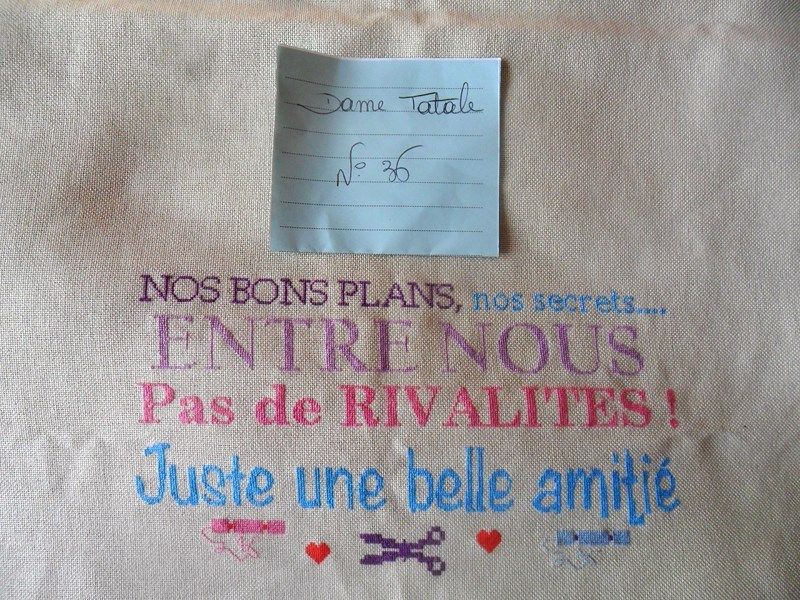 Dame Tatale
N° 36
NOS BONS PLANS, nos secrets....
ENTRE NOUS
Pas de RIVALITES !
Juste une belle amitié